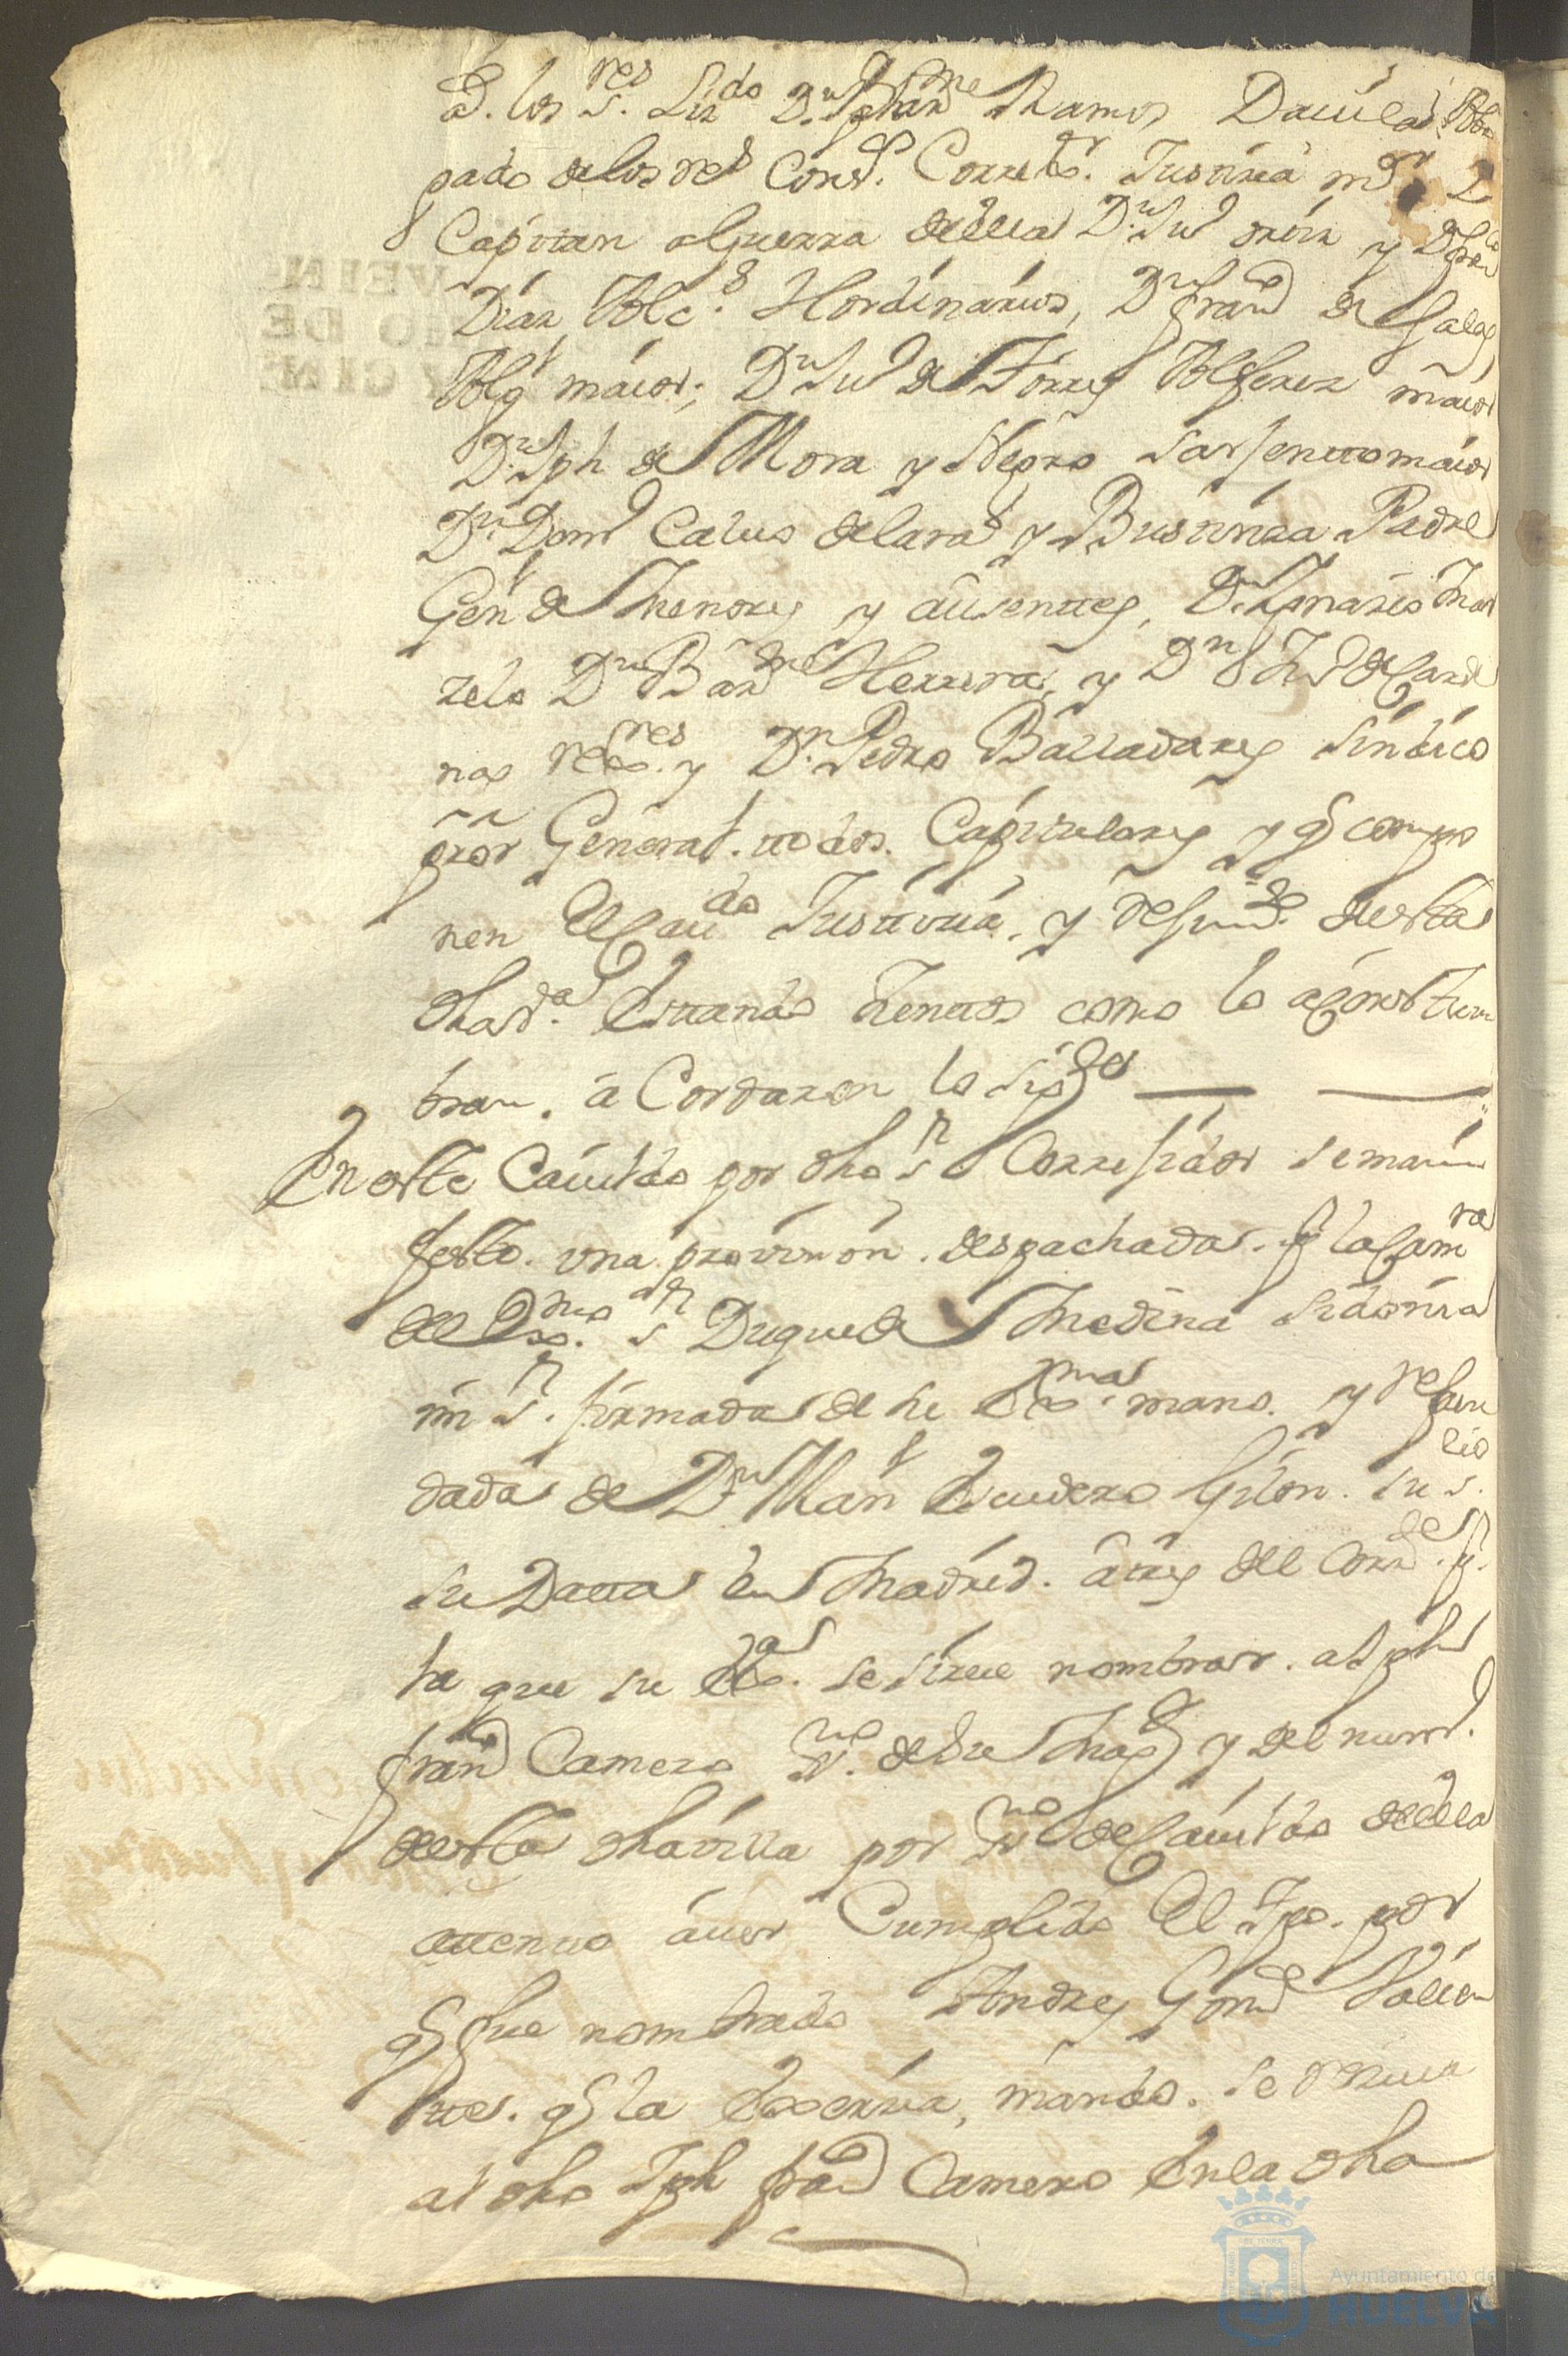 a. los s.res Liz.do D.n Jph Ramos Davila Abo
gado de los r.s Cons.s Correg.or Justizia m.or
Capitan a Guerra de ella D.n Ju.o y D.n
Diaz Alc.s Hordinarios, D.n fran.co de Salas
Alg.l maior; D.n Ju.o de Torres Alferez maior
D.n Jph de Mora y Negro Sarjentto maior
D.n Dom.o Calvo de Lara y Bustinza Padre
Gen.l de Menores y ausenttes, D.n Ignazio Mar
zelo D.n Bar.me Herrera, y D.n de Carde
nas res.res y D.n Pedro Balladares sindico
pror General. ttodos. Capitulares y q.e compo
nen el Cau.do Justizia, y reximi.to de esta
dha v.a Estando Juntos como lo acostum
bran. acordaron lo sig.te
En este Cauildo por dho s.r Correxidor se mani
festo. una provision. despachada. p.r la Cam.ra
del Ex.mo s.r Duque de Medina Sidonia
mi s.r. firmada de su Ex.ma mano. y refren
dada de D.n Man.l Escudero Gilon. su s.rio
su Datta en Madrid. a ttres del Corr.te p.r
la que su Ex.a se sirve nombrar. a Jph
fran.co Camero ss.no de su Mag.d y del num.o
de esta dha villa por ss.no de Cauildo de ella
attento auer Cumplido el tpo. por
q.e fue nombrado Andres Gonz. Valien
ttes. q.e la Exerzia, mando. se rreziua
al dho Jph fran.co Camero En la dha
Ayuntamiento de
HUELVA